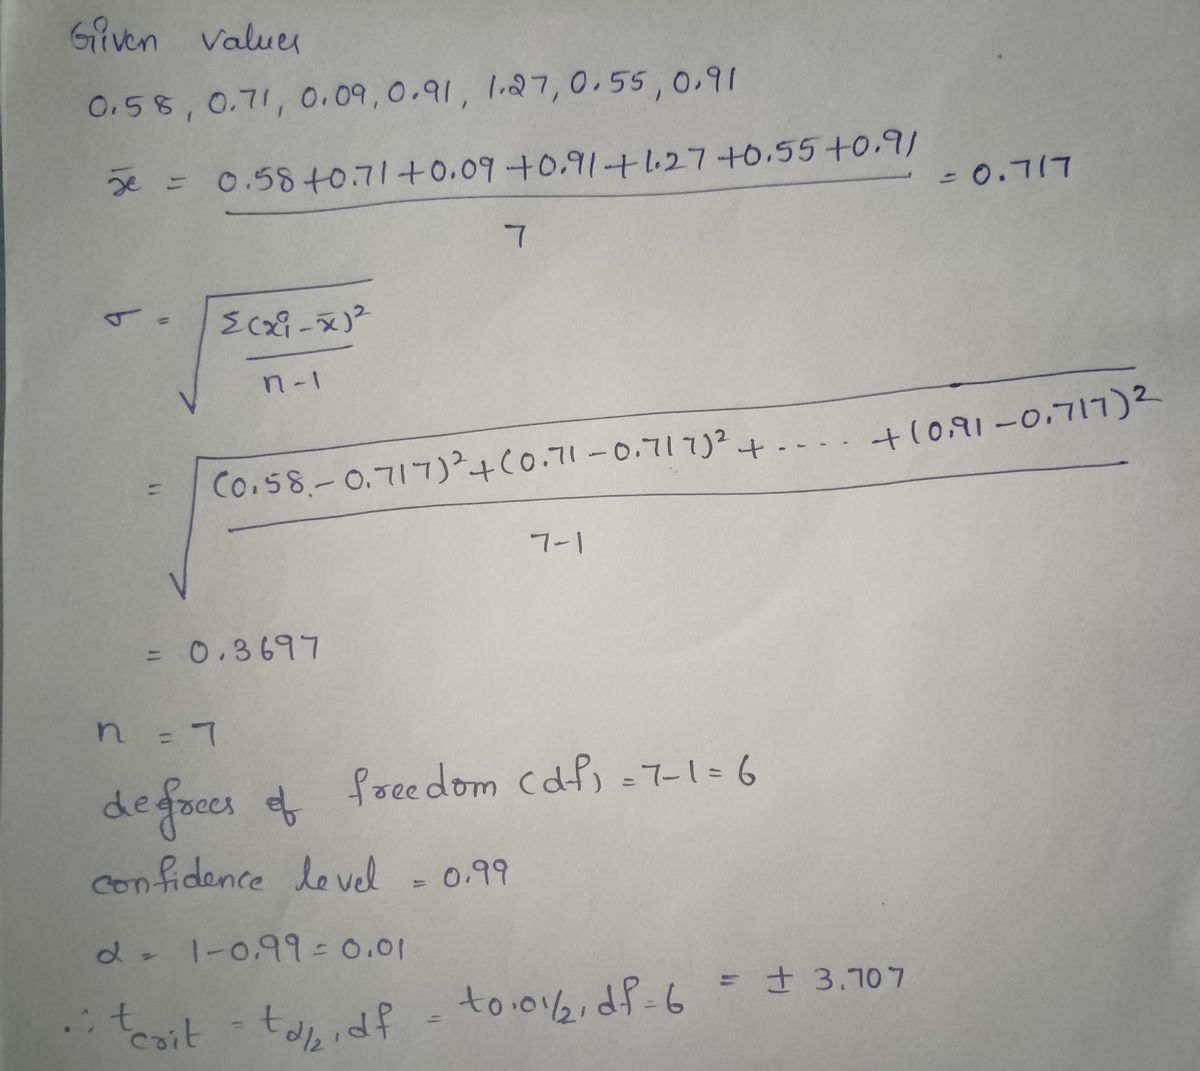 Given values
0.58, 0.71, 0.09, 0.91, 1.27, 0.55, 0.91
x̄ = 0.58+0.71+0.09+0.91+1.27+0.55+0.91 = 0.717
7
σ = √ Σ(xi-x̄)²
n-1
= √ (0.58-0.717)²+(0.71-0.717)²+.....+(0.91-0.717)²
7-1
= 0.3697
n = 7
degrees of freedom (df) = 7-1 = 6
confidence level = 0.99
α = 1-0.99 = 0.01
∴ tcrit = tα/2, df = t0.01/2, df=6 = ± 3.707